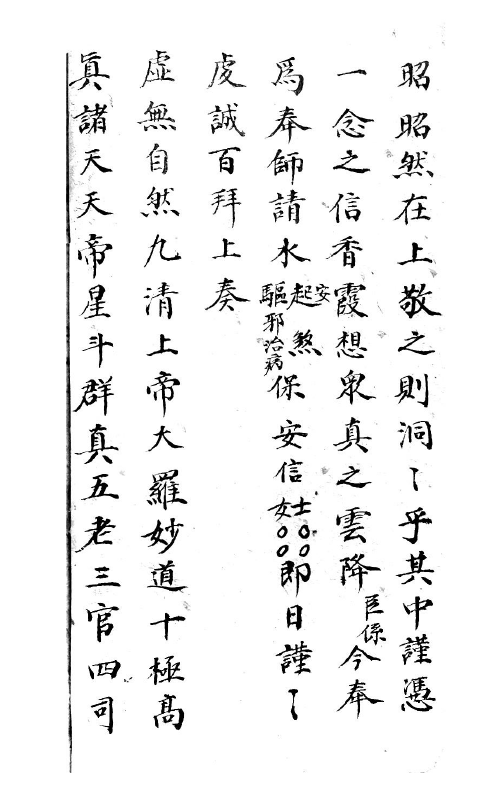 昭昭然在上敬之則洞〻乎其中謹憑
一念之信香霞想眾真之雲降臣係今奉
爲奉師請水安起煞驅邪治病保安信士〇〇女〇〇即日謹〻
虔誠百拜上奏
虛無自然九清上帝大羅妙道十極高
眞諸天天帝星斗群真五老三官四司